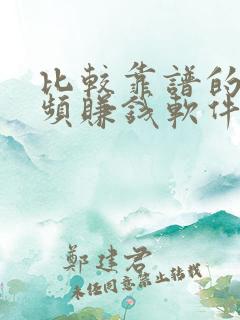 比較靠譜的
頻賺錢軟件
鄭建君
未經同意禁止轉載